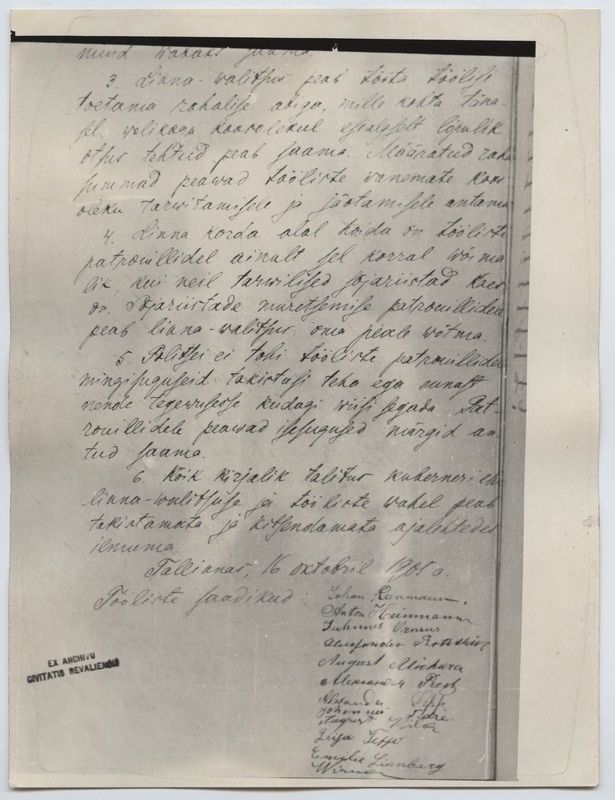 saama.
3. Linna-walitsus peab tööta töölisi
toetama rahalise abiga, mille kohta täna-
sel wolikogu koosolekul lõpulik
otsus tehtud peab saama. Määratud raha
summad peawad tööliste wanemate koos
oleku tarwitamisele ja jäotamisele antama
4. Linna korda alal hoida on tööliste
patrouillidel ainult sel korral wõima
lik, kui neil tarwilised sõjariistad käes
on. Sõjariistade muretsemise patrouillidele
peab linna-walitsus oma peale wõtma.
5. Politsei ei tohi tööliste patrouillidele
mingisuguseid takistusi teha ega ennast
nende tegewusesse kudagi wiisi segada. Pat-
rouillidele peawad isesugused märgid an-
tud saama.
6. Kõik kirjalik talitus kuberneri eh
linna-walitsuse ja tööliste wahel peab
takistamata ja kitsendamata ajalehtedes
ilmuma.
Tallinnas, 16 oktobril 1905 a.
Tööliste saadikud:
Johan Reinmann.
Anton Heinmann
Juhannes
Alexsander
August Mickura
Aleksander
Alexander
Johannes
August
Liisa Teppo
Emilie Lianberg
EX ARCHIVO
CIVITATIS REVALIENSIS